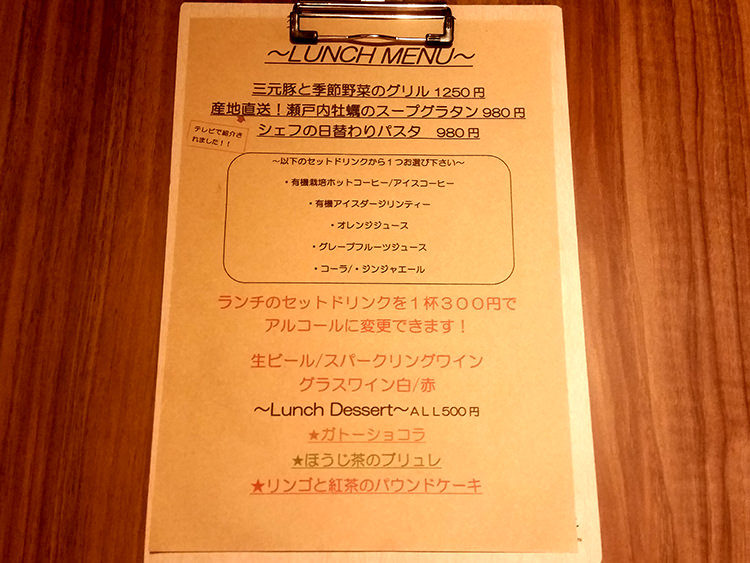 ～LUNCH MENU～
三元豚と季節野菜のグリル 1250円
産地直送！瀬戸内牡蠣のスープグラタン 980円
シェフの日替わりパスタ 980円
テレビで紹介さ
れました！！
～以下のセットドリンクから１つお選び下さい～
・有機栽培ホットコーヒー/アイスコーヒー
・有機アイスダージリンティー
・オレンジジュース
・グレープフルーツジュース
・コーラ/・ジンジャエール
ランチのセットドリンクを１杯３００円で
アルコールに変更できます！
生ビール/スパークリングワイン
グラスワイン白/赤
～Lunch Dessert～ＡＬＬ500円
★ガトーショコラ
★ほうじ茶のブリュレ
★リンゴと紅茶のパウンドケーキ